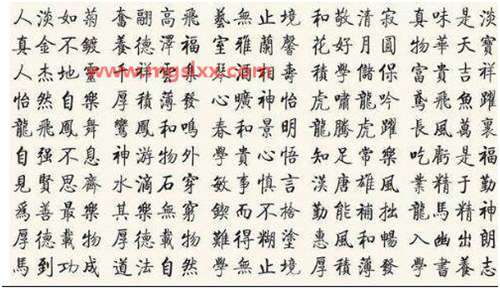 人淡如菊 奮翮高飛 藝無止境 和敬清寂 真味是淡
真金不鍍 養德澤福 室雅蘭馨 花好月圓 物華天寶
人杰地靈 祥 學儲保 富貴吉祥
www.mgslxx.com
怡然自樂 厚積薄發 心曠神怡 虎嘯龍吟 鳶飛魚躍
龍飛鳳舞 鸞鳳和鳴 春和景明 龍騰虎躍 長風萬裏
自强不息 神游物外 學貴心悟 知足常樂 吃虧是福
見賢思齊 水滴石穿 敏事慎言 漢唐雄風 業精于勤
爲善最樂 其樂無窮 鍥而不捨 勤能補拙 龍馬精神
厚德載物 厚德載物 難得糊塗 惠風和暢 入幽出朗
馬到功成 道法自然 學無止境 厚積薄發 學書養志